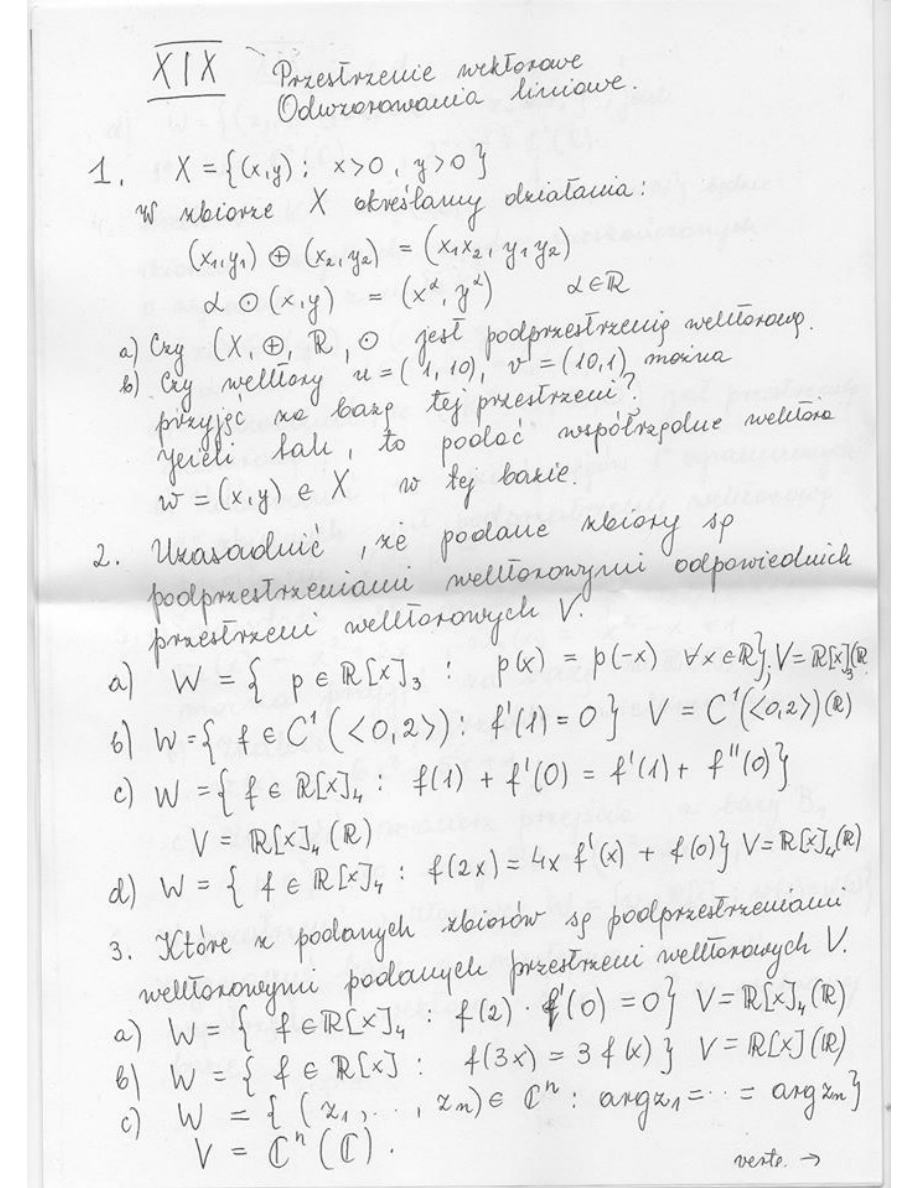 XIX Przestrzenie wektorowe
Odwzorowania liniowe.
1. X = {(x,y) : x>0, y>0}
W zbiorze X określamy działania:
(x₁,y₁) ⊕ (x₂,y₂) = (x₁x₂, y₁y₂)
α ⊙ (x,y) = (x^α, y^α) α∈ℝ
a) Czy (X, ⊕, ℝ, ⊙ jest podprzestrzenią wektorową.
b) Czy wektory u = (1,10), v = (10,1) można
przyjąć za bazę tej przestrzeni?
Jeżeli tak, to podać współrzędne wektora
w = (x,y) ∈ X w tej bazie.
2. Uzasadnić, że podane zbiory są
podprzestrzeniami wektorowymi odpowiednich
przestrzeni wektorowych V.
a) W = { p ∈ ℝ[x]₃ : p(x) = p(-x) ∀x∈ℝ}, V = ℝ[x]₃(ℝ
b) W = { f ∈ C¹(<0,2>) : f'(1) = 0 } V = C¹(<0,2>)(ℝ)
c) W = { f ∈ ℝ[x]₄ : f(1) + f'(0) = f'(1) + f''(0) }
V = ℝ[x]₄(ℝ)
d) W = { f ∈ ℝ[x]₄ : f(2x) = 4x f'(x) + f(0)} V = ℝ[x]₄(ℝ)
3. Które z podanych zbiorów są podprzestrzeniami
wektorowymi podanych przestrzeni wektorowych V.
a) W = { f ∈ ℝ[x]₄ : f(2) · f'(0) = 0} V = ℝ[x]₄(ℝ)
b) W = { f ∈ ℝ[x] : f(3x) = 3 f(x) } V = ℝ[x](ℝ)
c) W = { (z₁, ..., zₙ) ∈ ℂⁿ : arg z₁ = ... = arg zₙ}
V = ℂⁿ(ℂ).
verte. →